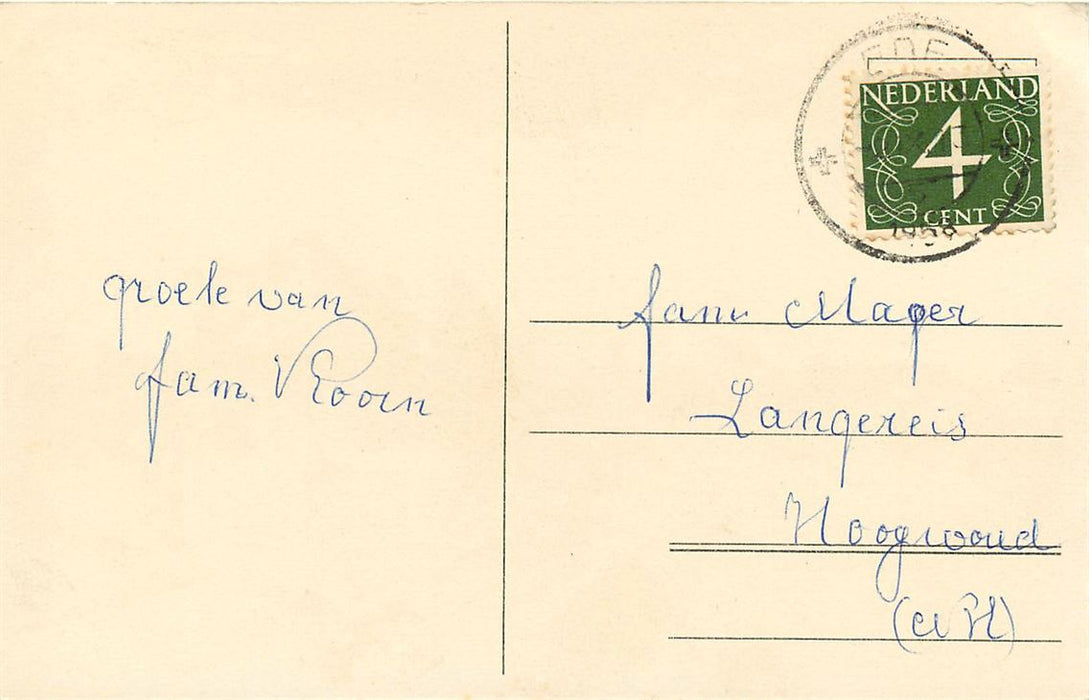 groete van
fam. Koorn
EDE
NEDERLAND
4
CENT
1958
fam Mager
Langereis
Hoogwoud
(NH)